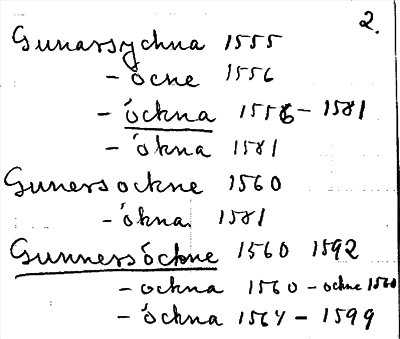 2.
Gunarsychna 1555
- ócne 1556
- óckna 1556 - 1581
- ókna 1581
Gunersockne 1560
- ókna 1581
Gunnersóckne 1560 1592
- ockna 1560 - ockne 1560
- óckna 1564 - 1599